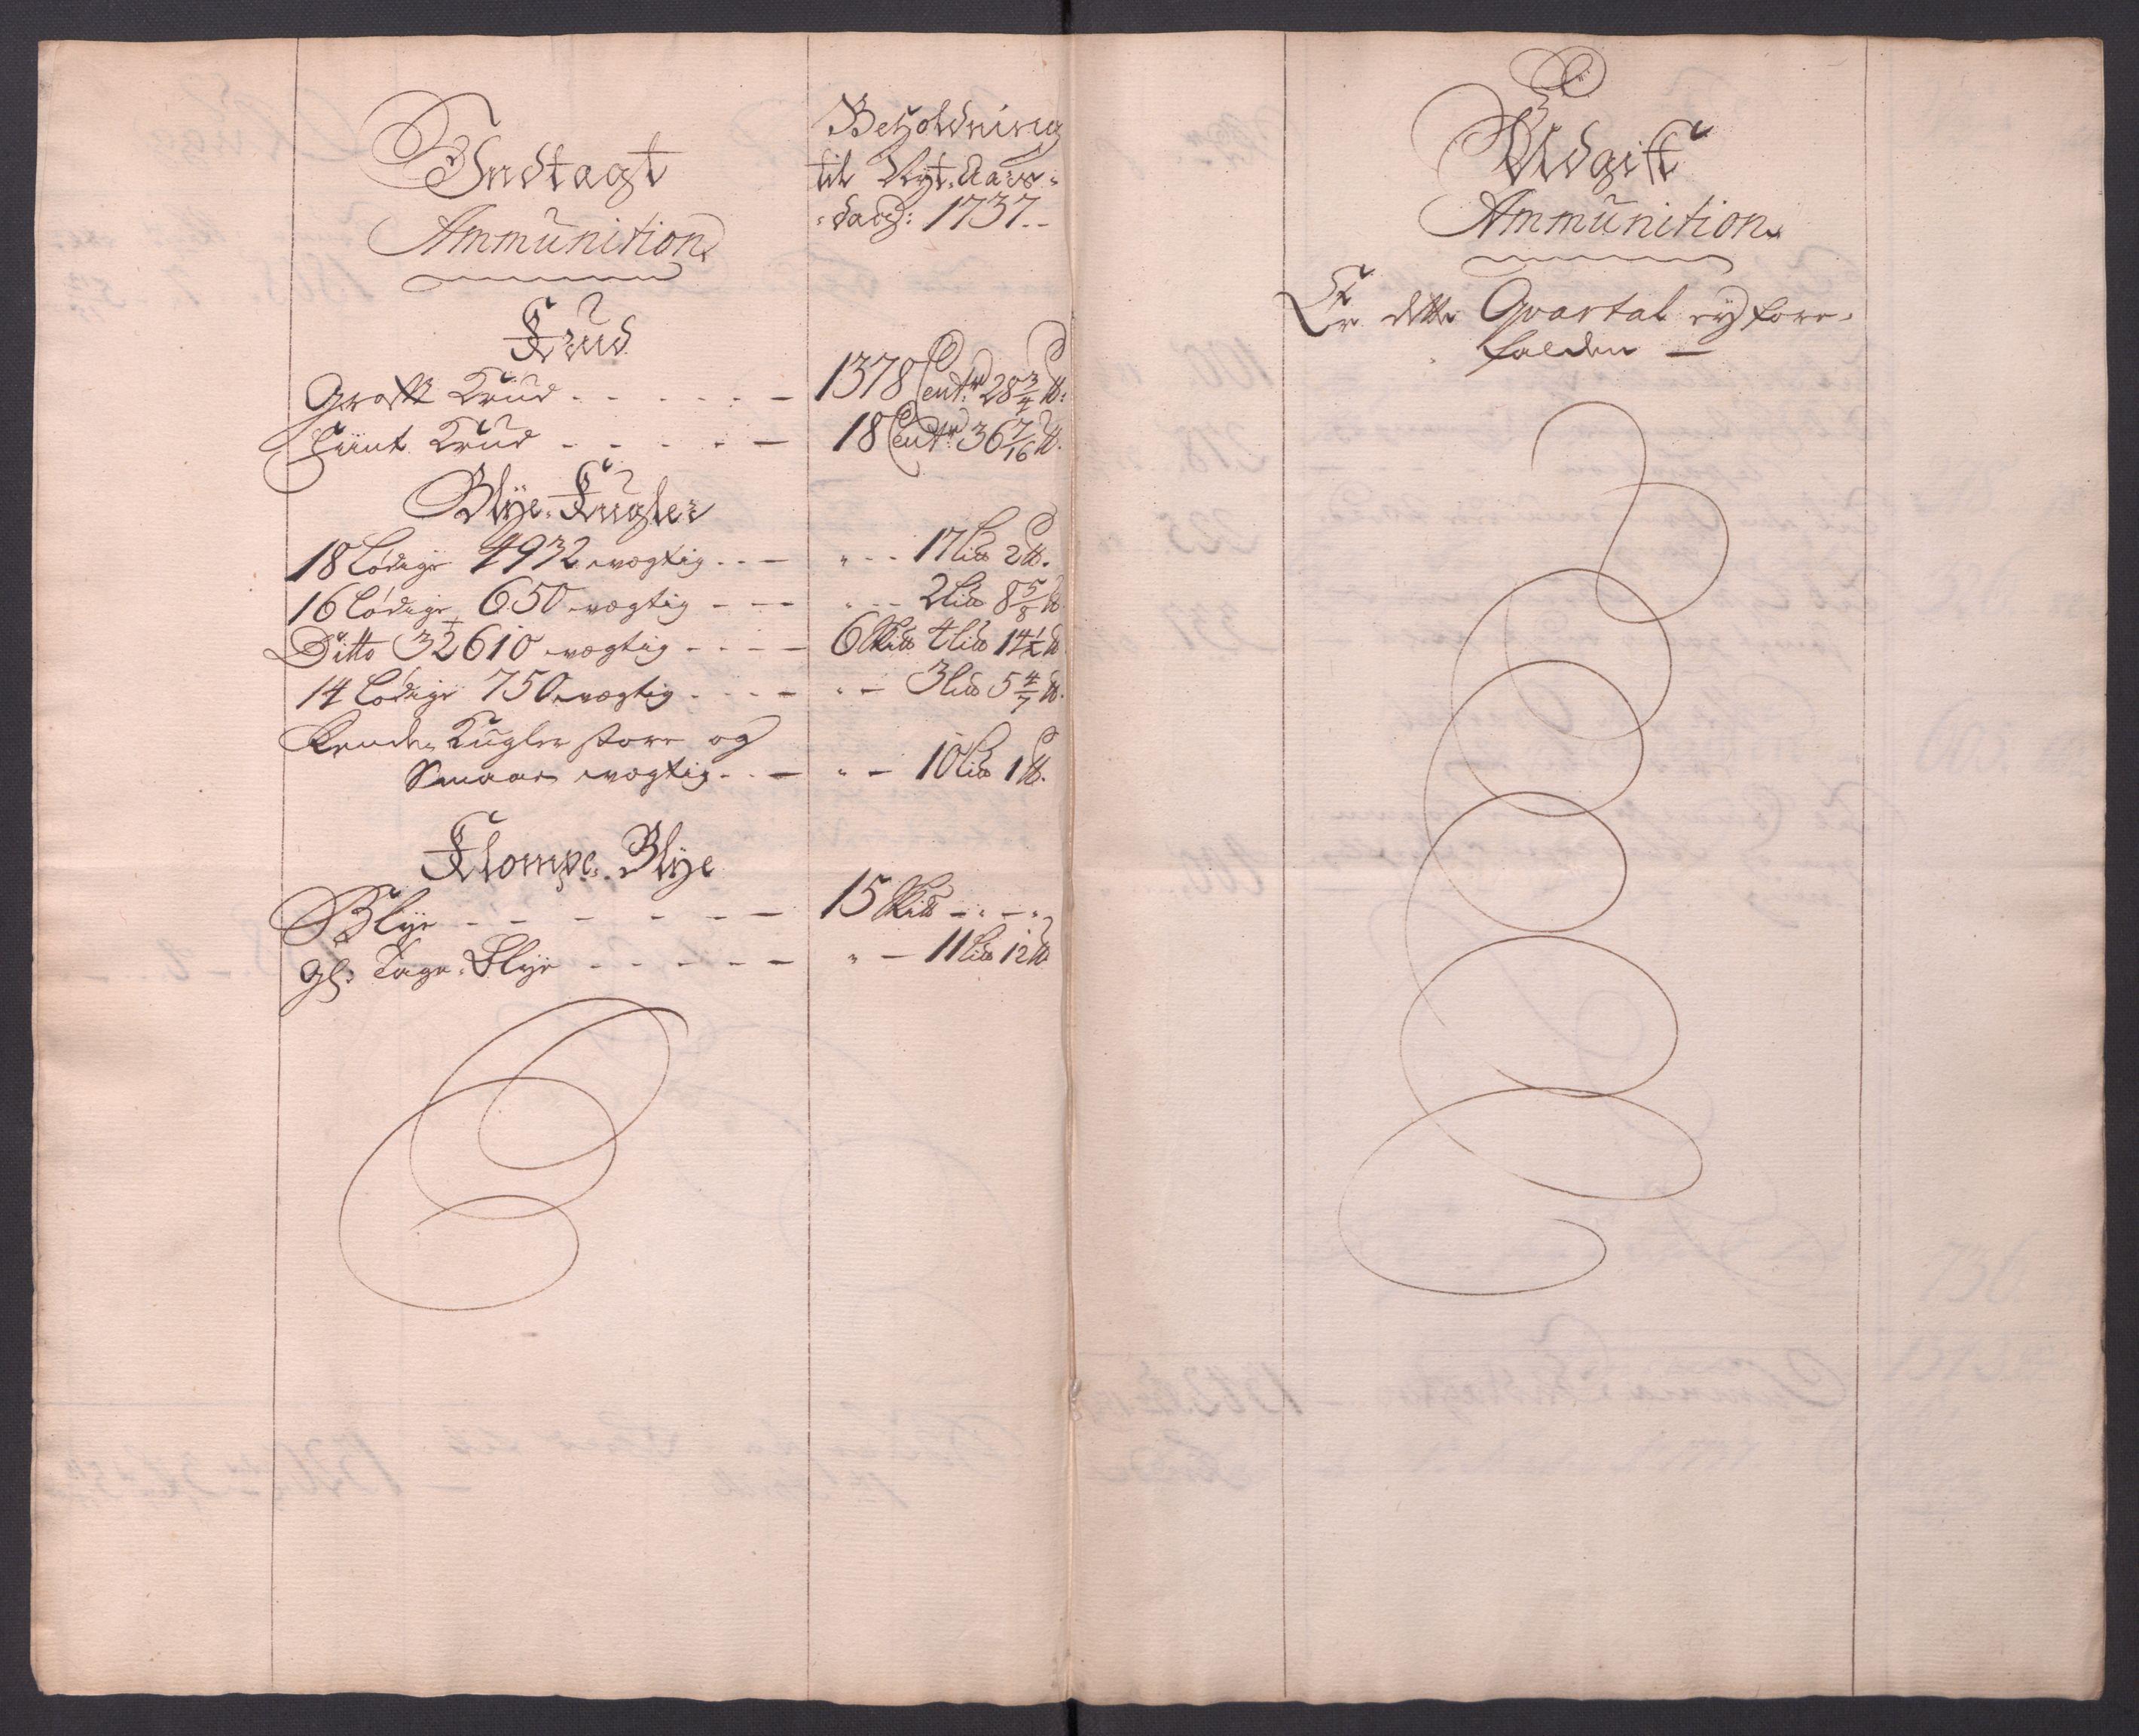 Indtægt
Ammunition
Beholdning
til Nyt-Aars-
dag: 1737.
Krud
Groft Krud - - - - - - 1378 Centr. 28 3/4 ℔.
Fiint Krud - - - - - 18 Centr. 36 7/16 ℔.
Blye-Kugler
18 Lødige 4932 vægtig - - - " - - 17 Li℔ 2 ℔.
16 Lødige 650 vægtig - - - " - - 2 Li℔ 8 5/8 ℔
Ditto 32610 vægtig - - - - 6 Ski℔ 4 Li℔ 14 1/2 ℔
14 Lødige 750 vægtig - - - - " - 3 Li℔ 5 4/7 ℔.
Kugler store og
Smaae vægtig - - - " - 10 Li℔ 1 ℔.
Klompe-Blye
Blye - - - - - - - 15 Ski℔ - " - "
Gl: Tage-Blye - - - - - - " - 11 Li℔ 12 ℔
Udgift
Ammunition
Er dette Qvartal ey fore-
falden -